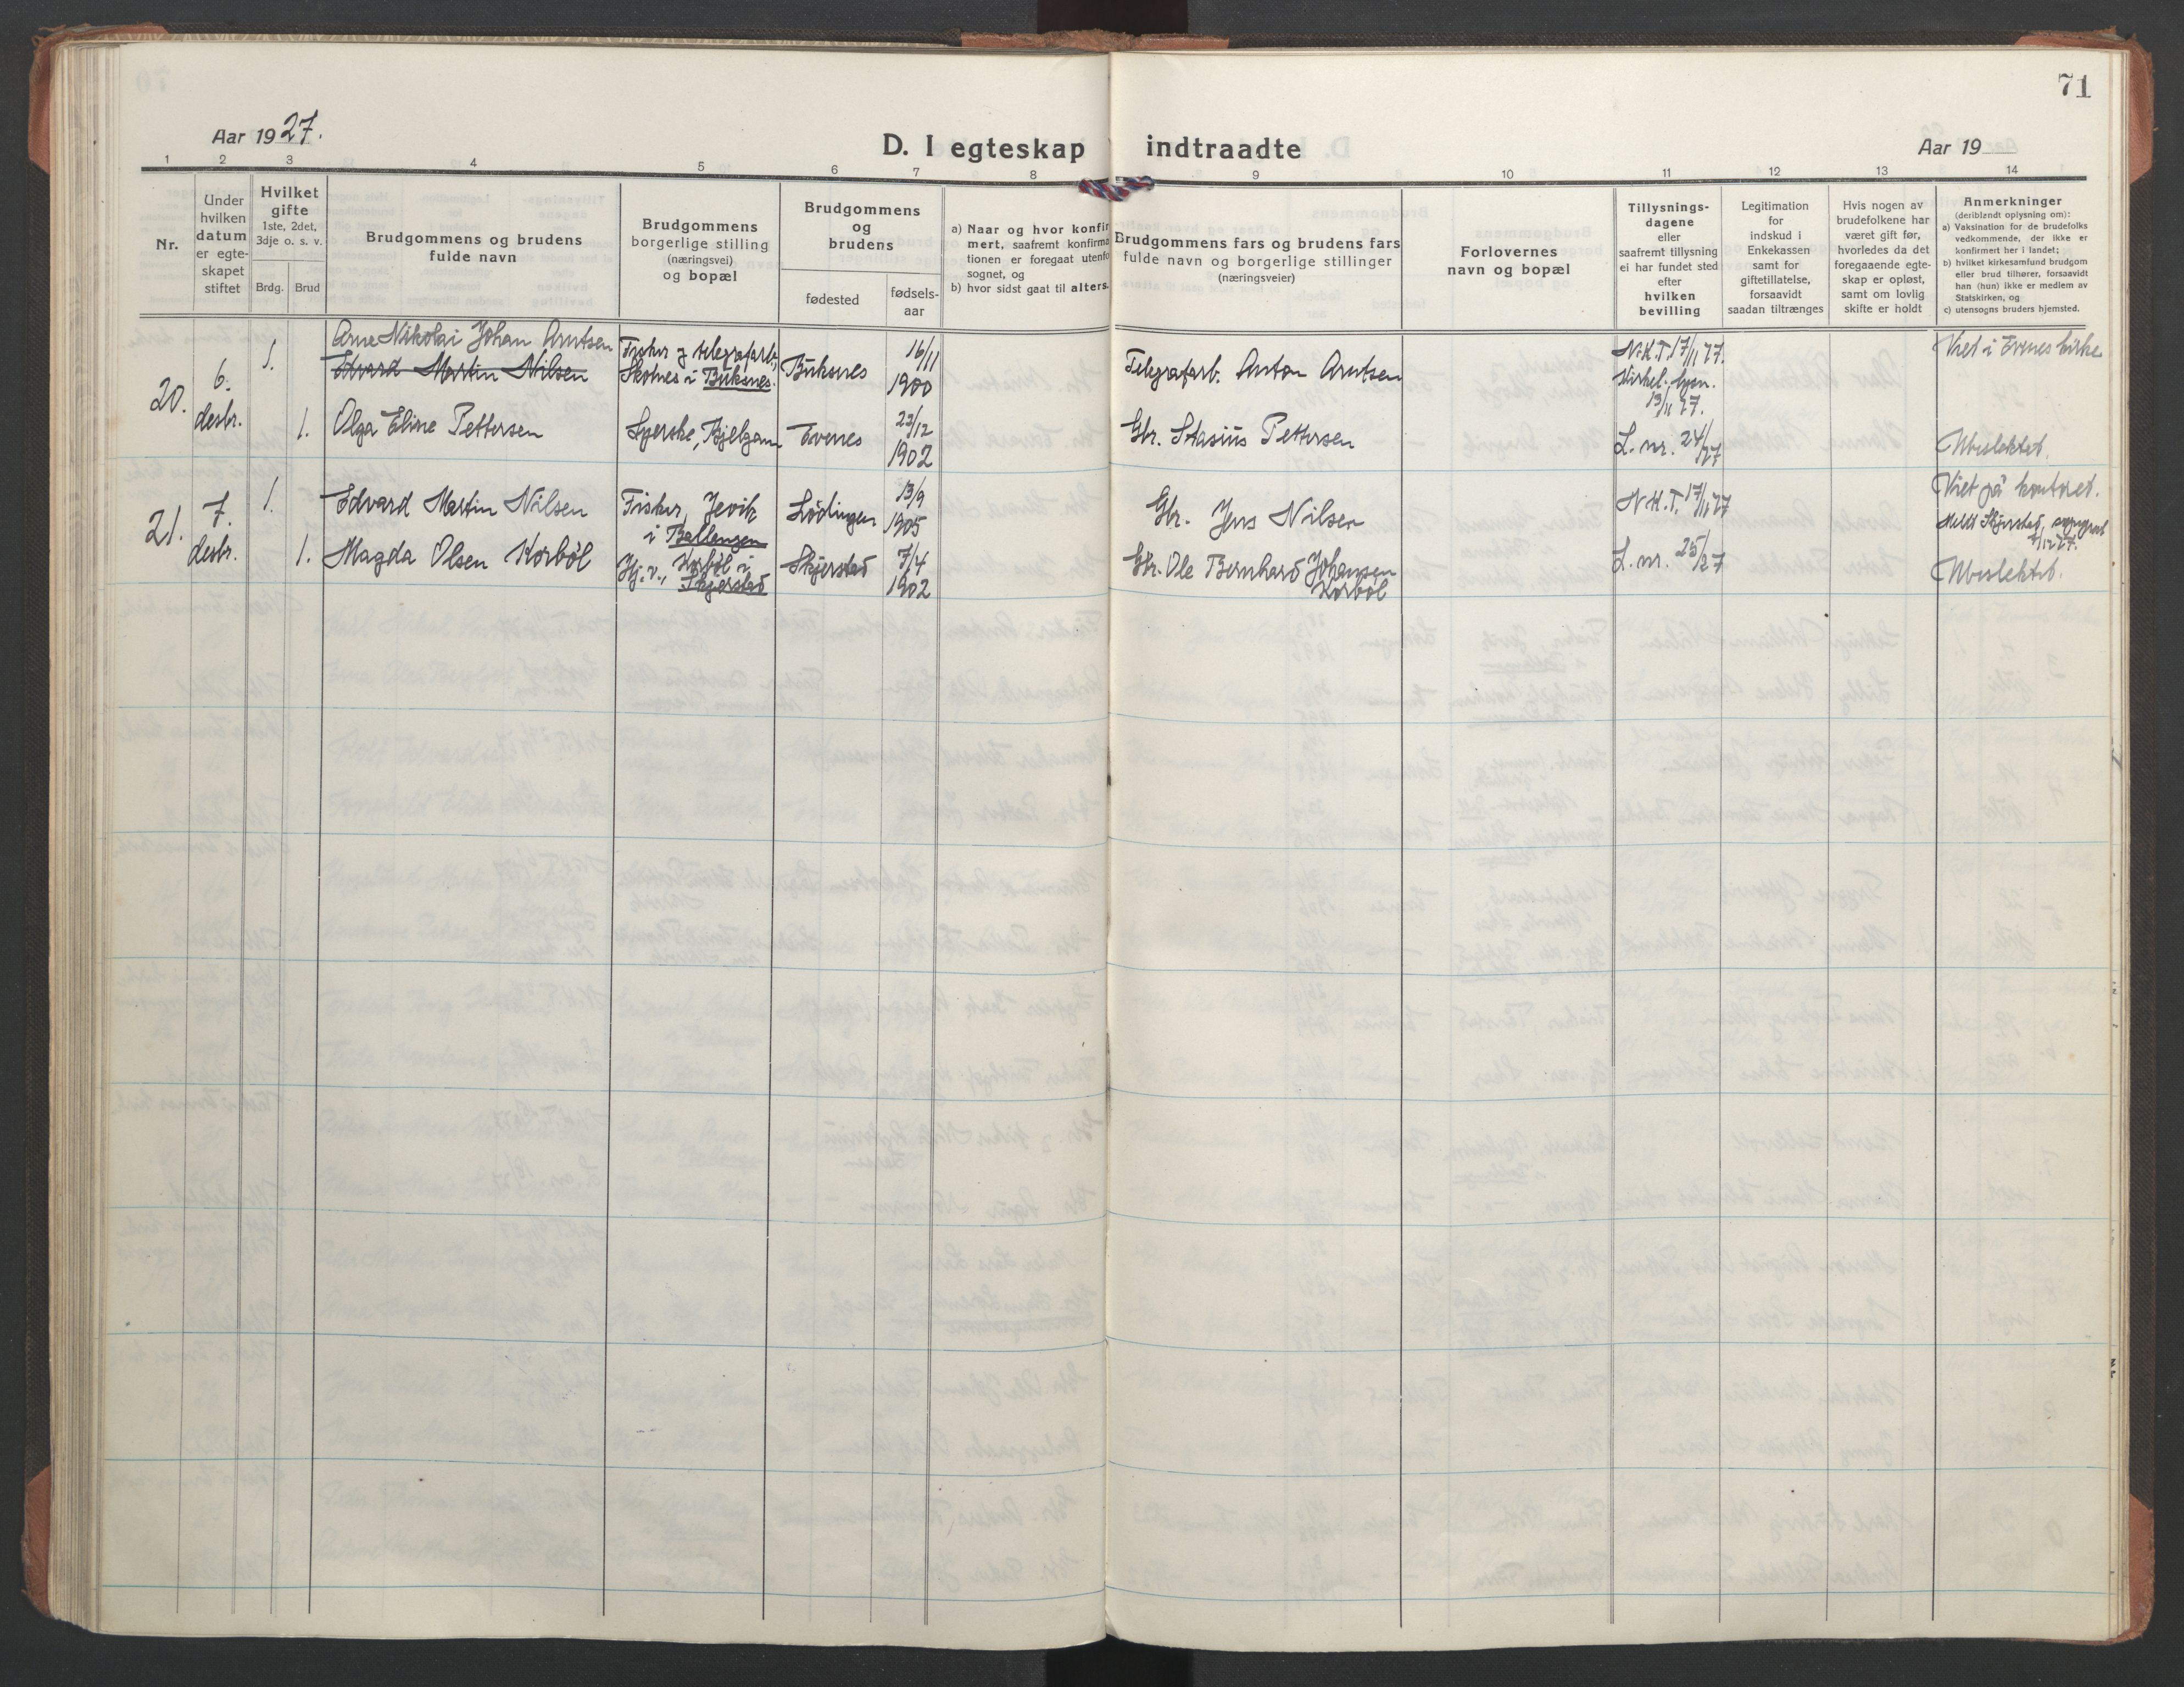 71
Aar 1927.
D. Iegteskap indtraadte
Aar 19
1 2 3 4 5 6 7 8 9 10 11 12 13 14
Nr.
Under
hvilken
datum
er egte-
skapet
stiftet
Hvilket
gifte
1ste, 2det,
3dje o. s. v.
Brdg. Brud
Brudgommens og brudens
fulde navn
Brudgommens
borgerlige stilling
(næringsvei)
og bopæl
Brudgommens
og
brudens
fødested
fødsels-
aar
a) Naar og hvor konfir
mert, saafremt konfirma
tionen er foregaat utenfo
sognet, og
b) hvor sidst gaat til alters.
Brudgommens fars og brudens fars
fulde navn og borgerlige stillinger
(næringsveier)
Forlovernes
navn og bopæl
Tillysnings-
dagene
eller
saafremt tillysning
ei har fundet sted
efter
hvilken
bevilling
Legitimation
for
indskud i
Enkekassen
samt for
giftetillatelse,
forsaavidt
saadan tiltrænges
Hvis nogen av
brudefolkene har
været gift før,
hvorledes da det
foregaaende egte-
skap er opløst,
samt om lovlig
skifte er holdt
Anmerkninger
(deriblandt oplysning om):
a) Vaksination for de brudefolks
vedkommende, der ikke er
konfirmert her i landet;
b) hvilket kirkesamfund brudgom
eller brud tilhører, forsaavidt
han (hun) ikke er medlem av
Statskirken, og
c) utensogns bruders hjemsted.
20.
6.
desbr.
1.
Arne Nikolai Johan Arntsen
Edvard Martin Nilsen
Fisker og telegrafarb.,
Skotnes i Buksnes.
Buksnes
16/11
1900
Telegrafarb. Anton Arntsen
N.K.T. 17/11 27.
13/11 27.
Viet i Evenes kirke
1.
Olga Eline Pettersen
Syerske,
Evenes
23/12
1902
Gbr. Stasius Pettersen
L. nr. 24/27
Ubeslektet.
21.
7.
desbr.
1.
Edvard Martin Nilsen
Fisker, Jevik
i Ballangen
Lødingen
13/9
1905
Gbr. Jens Nilsen
N.K.T. 17/11 27
Viet på kontoret.
Meldt Skjerstad,
1.
Magda Olsen Korbøl
Hj.v., Korbøl i
Skjerstad
Skjerstad
7/4
1902
Gbr. Ole Bernhard Johansen
Korbøl
L. nr. 25/27
Ubeslektet.